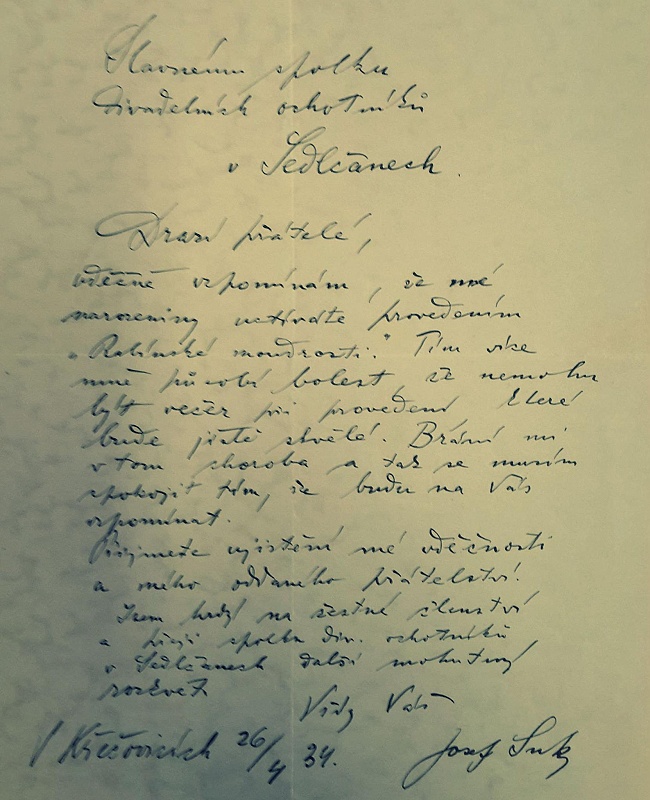 Slavnému spolku
divadelních ochotníků
v Sedlčanech.
Drazí přátelé,
vděčně vzpomínám, že mé
narozeniny uctíváte provedením
„Rabínské moudrosti." Tím více
mně působí bolest, že nemohu
být večer při provedení které
bude jistě skvělé. Brání mi
v tom choroba a tak se musím
spokojit tím, že budu na Vás
vzpomínat.
Přijměte ujištění mé vděčnosti
a mého oddaného přátelství.
Jsem hrdý na čestné členství
a přeji spolku div. ochotníků
v Sedlčanech další mohutný
rozkvět
Vždy Váš
V Křečovicích 26/4 34.
Josef Suk